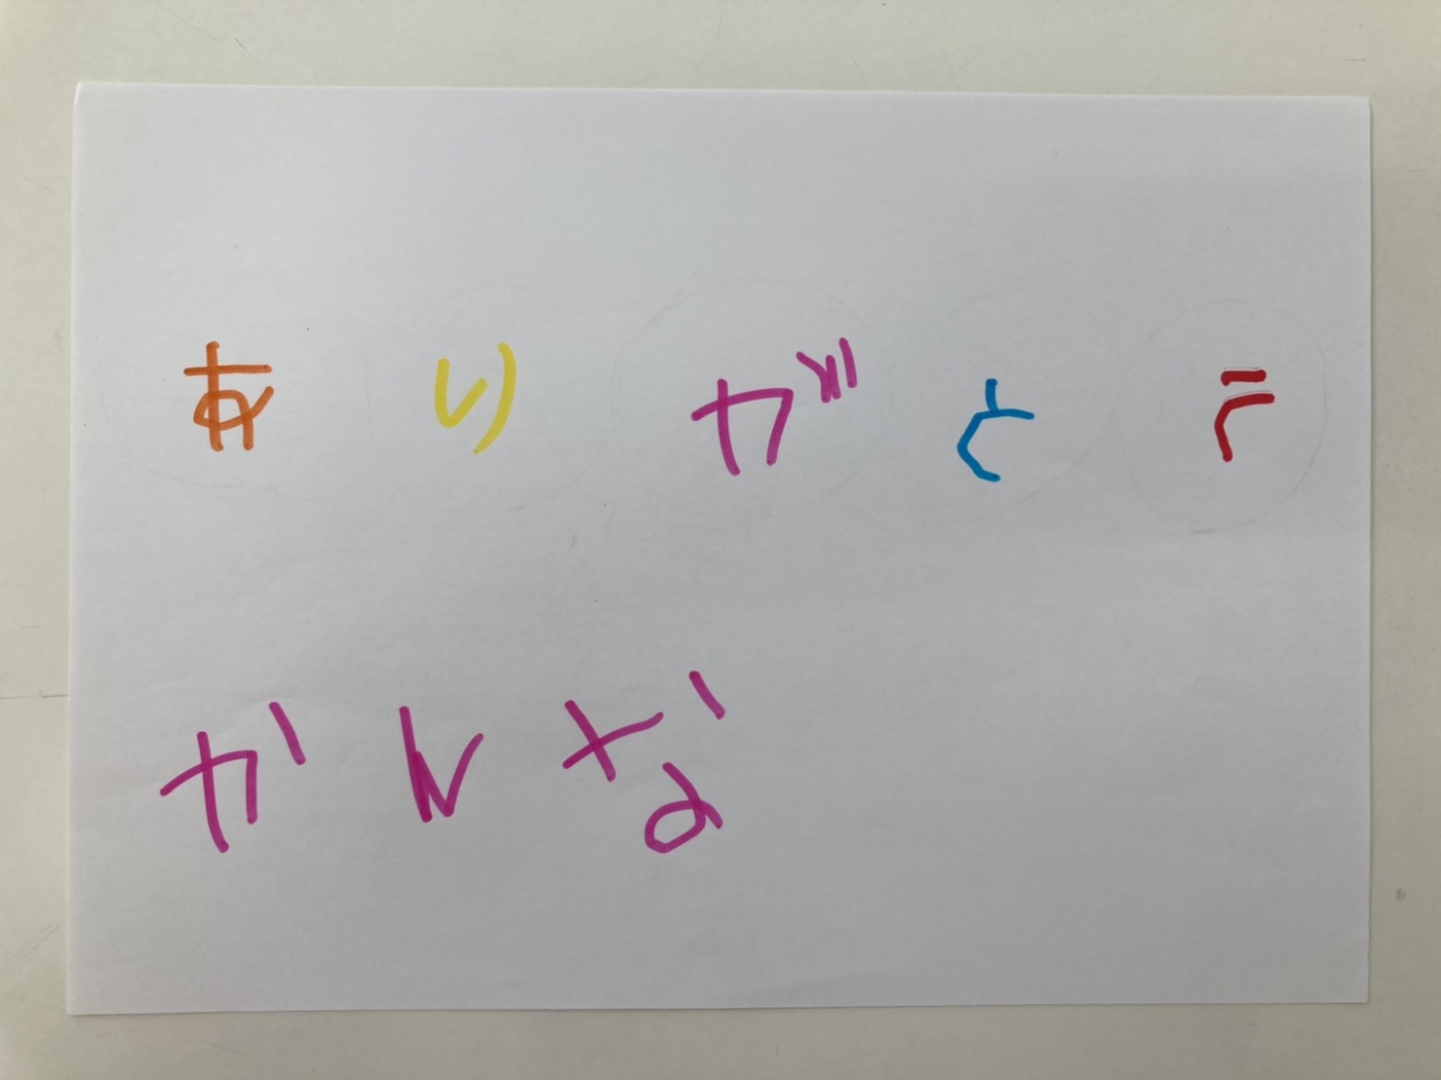 ありがとう
かんな